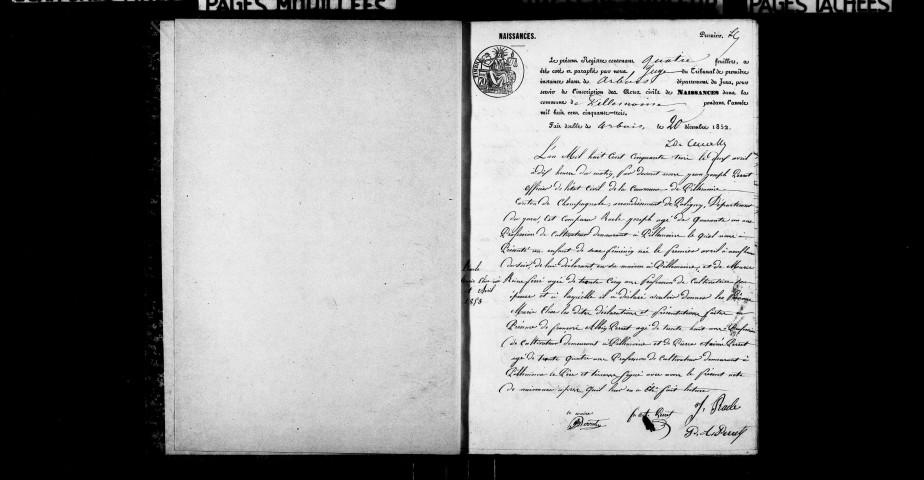 PAGES MOUILLEES
PAGES TACHEES
NAISSANCES.
Premier.
Le présent Registre contenant quatre feuillets, a
été coté et paraphé par nous Juge du Tribunal de première
instance séant de Arbois département du Jura, pour
servir de l'inscription des Actes civils de NAISSANCES dans la
commune de Pillemoine pendant l'année
mil huit cent cinquante-trois.
Fait double de Arbois, le 20 décembre 1852.
L'an Mil huit Cent Cinquante trois le deux avril
à dix heures du matin, par devant nous jean joseph Perret
officier de l'état Civil de la Commune de Pillemoine
Canton de Champagnole, arrondissement de Poligny, Département
du jura, Est Comparu Racle joseph agé de quarante un ans
Profession de Cultivateur demeurant à Pillemoine le quel nous à
Présenté un enfant de sexe féminin née le premier avril à
du soir, de lui déclarant, en sa maison à Pillemoine, et de Marie
Racle
Reine agée de trente Cinq ans Profession de Cultivatrice son
Avril
épouse et à laquelle il a déclaré vouloir donner les Prénoms
1853
Marie Elise les dites déclarations et présentations faites en
Présence de françois Alby Perret agé de trente huit ans Profession
de Cultivateur demeurant à Pillemoine et de Pierre Aimé Perret
agé de trente quatre ans Profession de Cultivateur demeurant à
Pillemoine le Père et temoins signé avec nous le présent acte
de naissance après quil leur en a été fait lecture
le maire
Perret
J. Racle
P. A. Perret